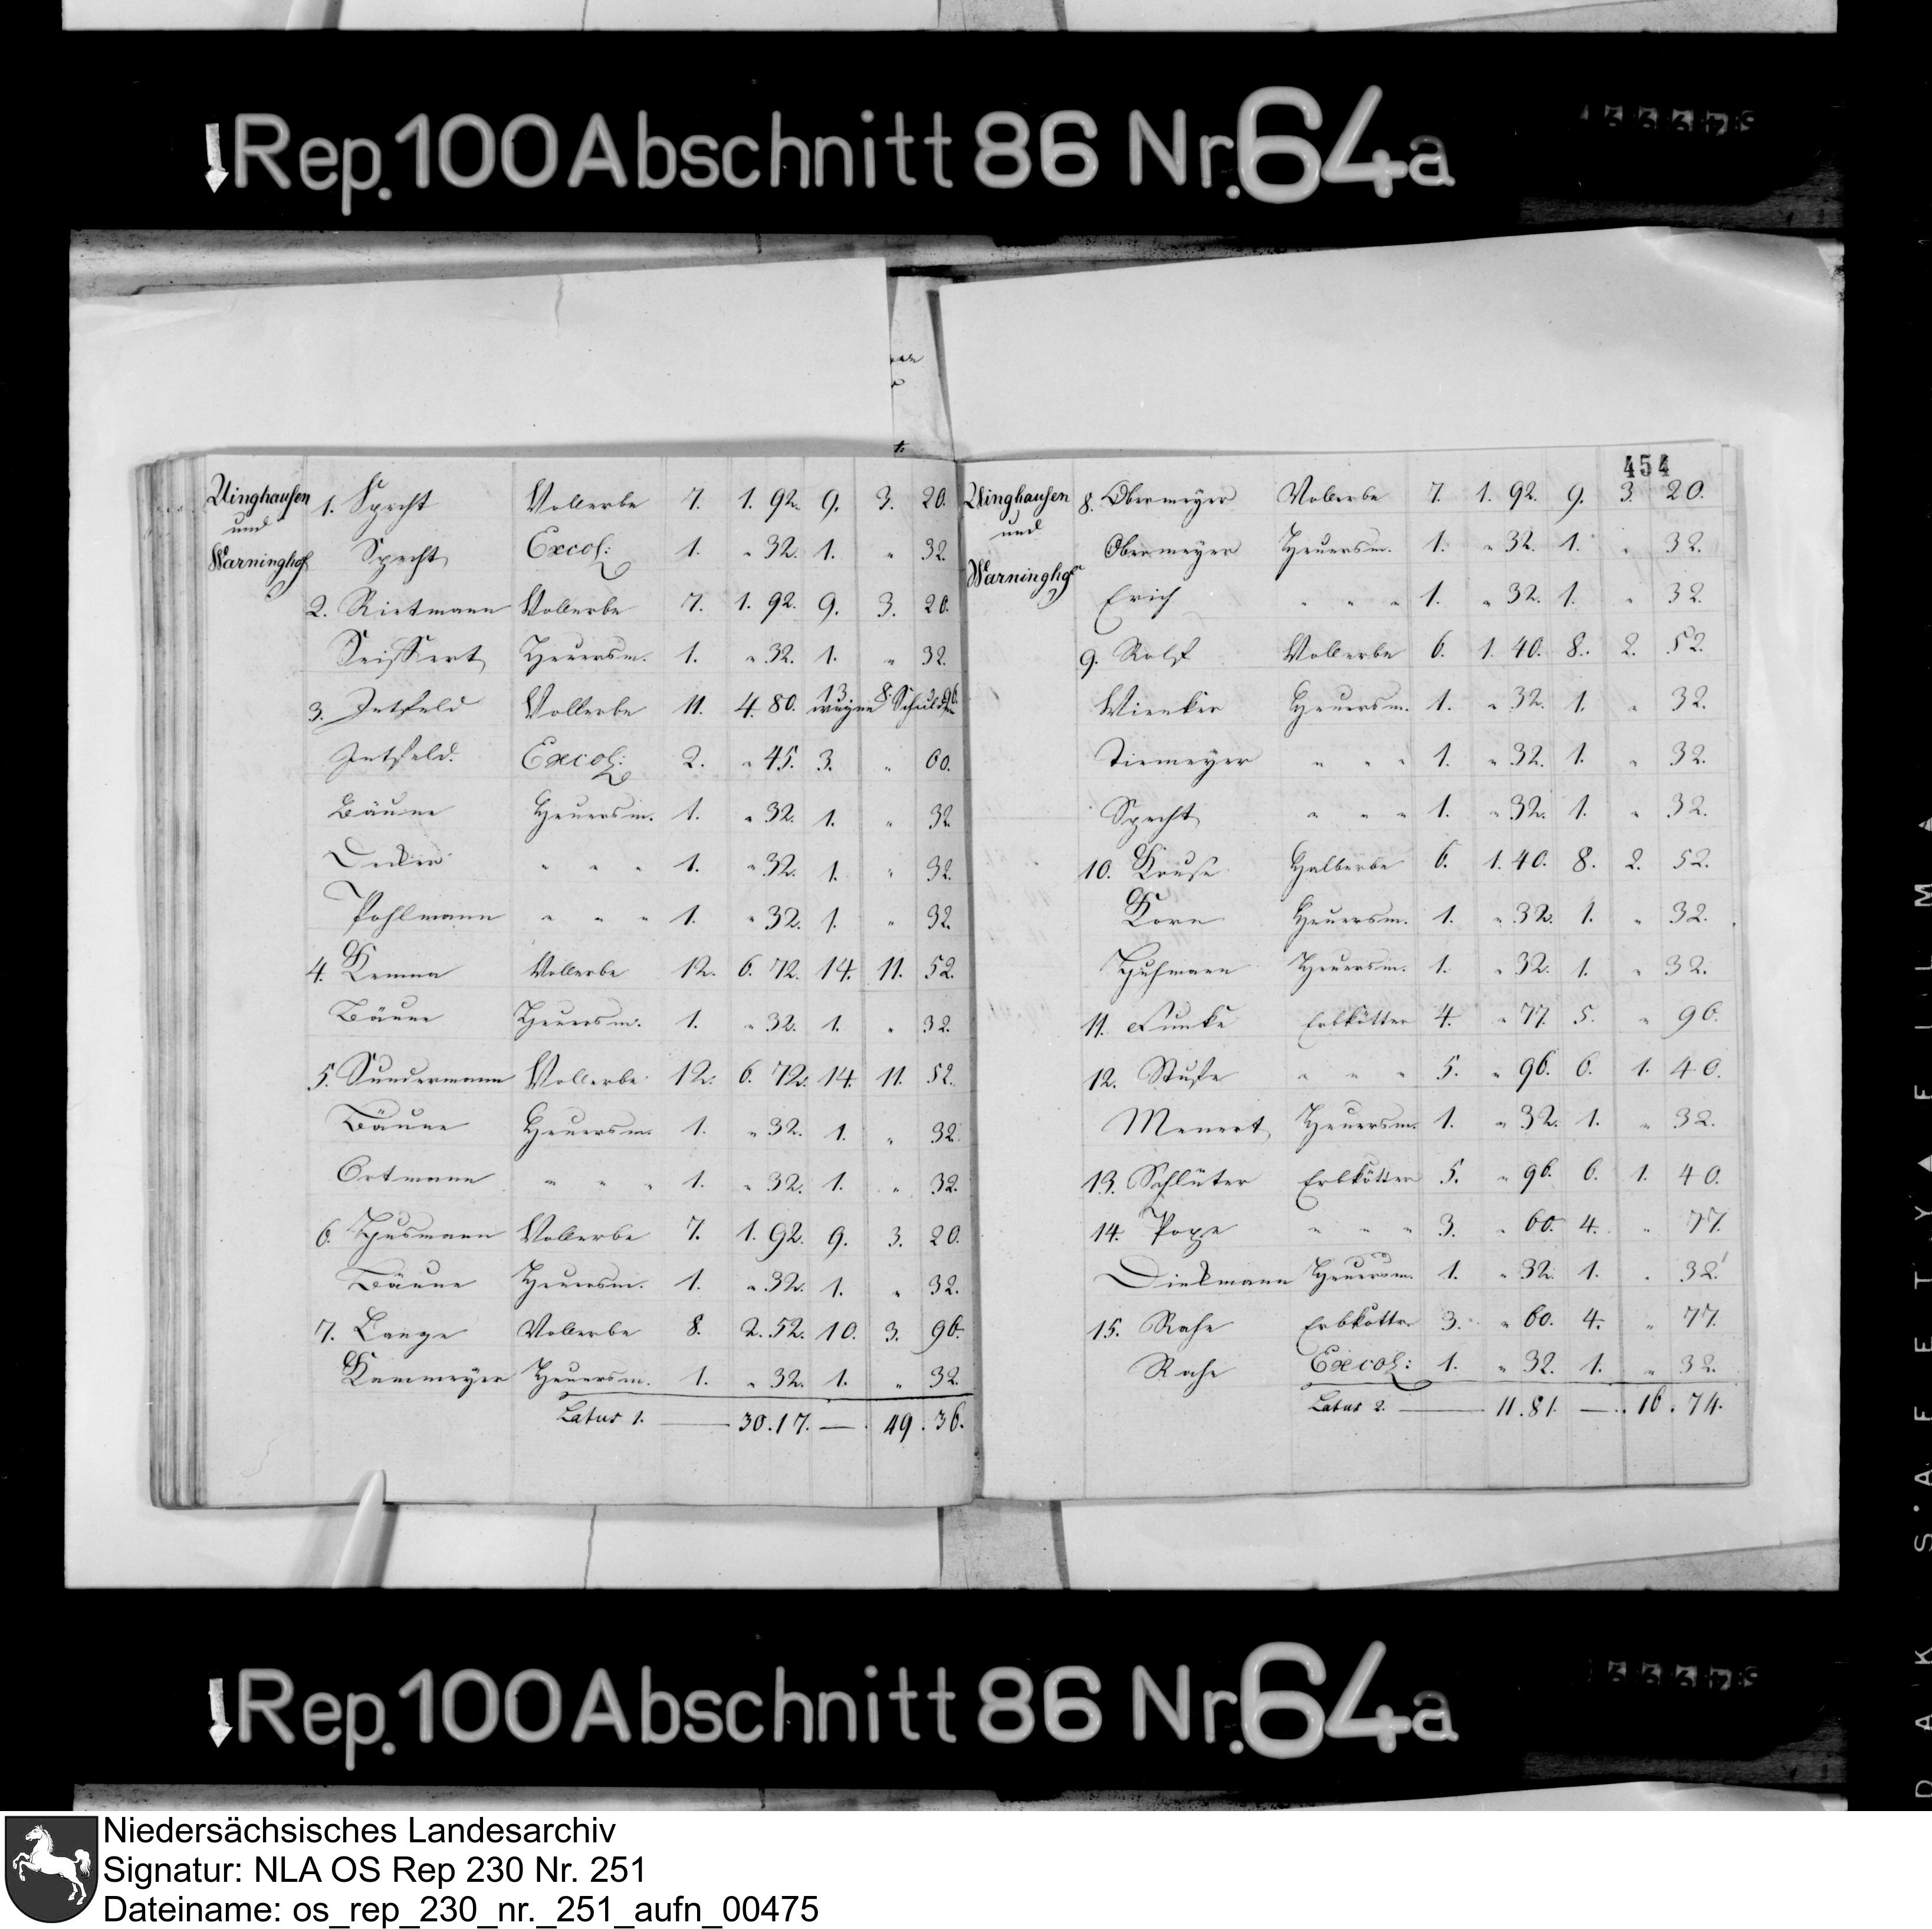 Rep. 100 Abschnitt 86 Nr. 64a
454
Uinghausen
und
Warninghof
1. Specht Vollerbe 7. 1. 92. 9. 3. 20.
Specht Excol: 1. " 32. 1. " 32.
2. Rietmann Vollerbe 7. 1. 92. 9. 3. 20.
Seissert Heuersm. 1. " 32. 1. " 32.
3. Jetfeld Vollerbe 11. 4. 80. 13. 8. 96.
wegen Schulden
Jetfeld. Excol: 2. " 45. 3. " 60.
Bäune Heuersm. 1. " 32. 1. " 32.
Decker " " " 1. " 32. 1. " 32.
Pohlmann " " " 1. " 32. 1. " 32.
4. Kemna Vollerbe 12. 6. 72. 14. 11. 52.
Bäune Heuersm. 1. " 32. 1. " 32.
5. Sundermann Vollerbe 12. 6. 72. 14. 11. 52.
Bäune Heuersm. 1. " 32. 1. " 32.
Ortmann " " " 1. " 32. 1. " 32.
6. Husmann Vollerbe 7. 1. 92. 9. 3. 20.
Bäune Heuersm. 1. " 32. 1. " 32.
7. Lange Vollerbe 8. 2. 52. 10. 3. 96.
Kammeyer Heuersm. 1. " 32. 1. " 32.
Latus 1. — 30. 17. — 49. 36.
Uinghausen
und
Warninghof
8. Obermeyer Vollerbe 7. 1. 92. 9. 3. 20.
Obermeyer Heuersm. 1. " 32. 1. " 32.
Erich " " " 1. " 32. 1. " 32.
9. Rolf Vollerbe 6. 1. 40. 8. 2. 52.
Wienker Heuersm. 1. " 32. 1. " 32.
Tiemeyer " " " 1. " 32. 1. " 32.
Specht " " " 1. " 32. 1. " 32.
10. Kruse Halberbe 6. 1. 40. 8. 2. 52.
Korn Heuersm. 1. " 32. 1. " 32.
Husmann Heuersm. 1. " 32. 1. " 32.
11. Funke Erbkötter 4. " 77. 5. " 96.
12. Stuke " " " 5. " 96. 6. 1. 40.
Menert Heuersm. 1. " 32. 1. " 32.
13. Schlüter Erbkötter 5. " 96. 6. 1. 40.
14. Pope " " " 3. " 60. 4. " 77.
Diekmann Heuersm. 1. " 32. 1. " 32.
15. Rahe Erbkötter 3. " 60. 4. " 77.
Rahe Excol: 1. " 32. 1. " 32.
Latus 2. — 11. 81. — 16. 74.
Rep. 100 Abschnitt 86 Nr. 64a
Niedersächsisches Landesarchiv
Signatur: NLA OS Rep 230 Nr. 251
Dateiname: os_rep_230_nr._251_aufn_00475